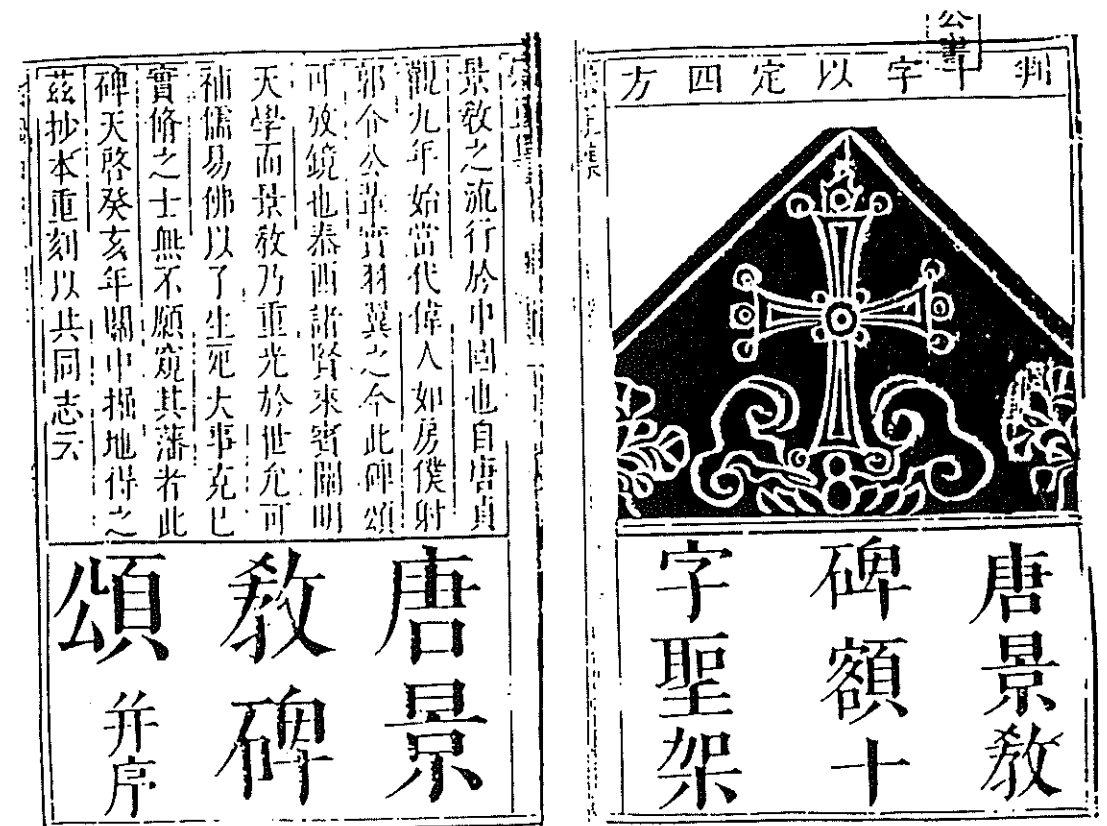 判十字以定四方
唐景敎
碑額十
字聖架
景敎之流行於中國也自唐貞
觀九年始當代偉人如房僕射
郭令公輩實羽翼之今此碑頌
可攷鏡也泰西諸賢來賓闡明
天學而景敎乃重光於世允可
補儒易佛以了生死大事克已
實脩之士無不願窺其藩者此
碑天啓癸亥年關中掘地得之
茲抄本重刻以共同志云
唐景
敎碑
頌并序